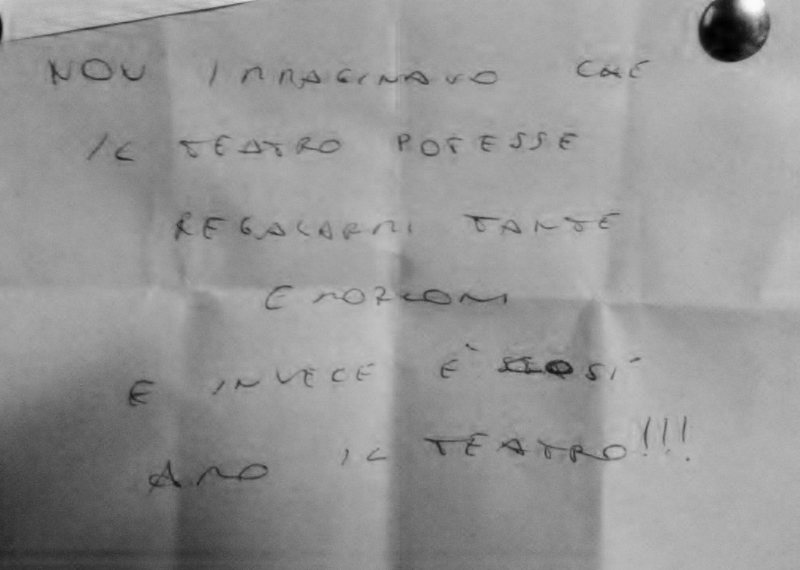 NON IMMAGINAVO CHE
IL TEATRO POTESSE
REGALARMI TANTE
EMOZIONI
E INVECE E' COSI'
AMO IL TEATRO!!!